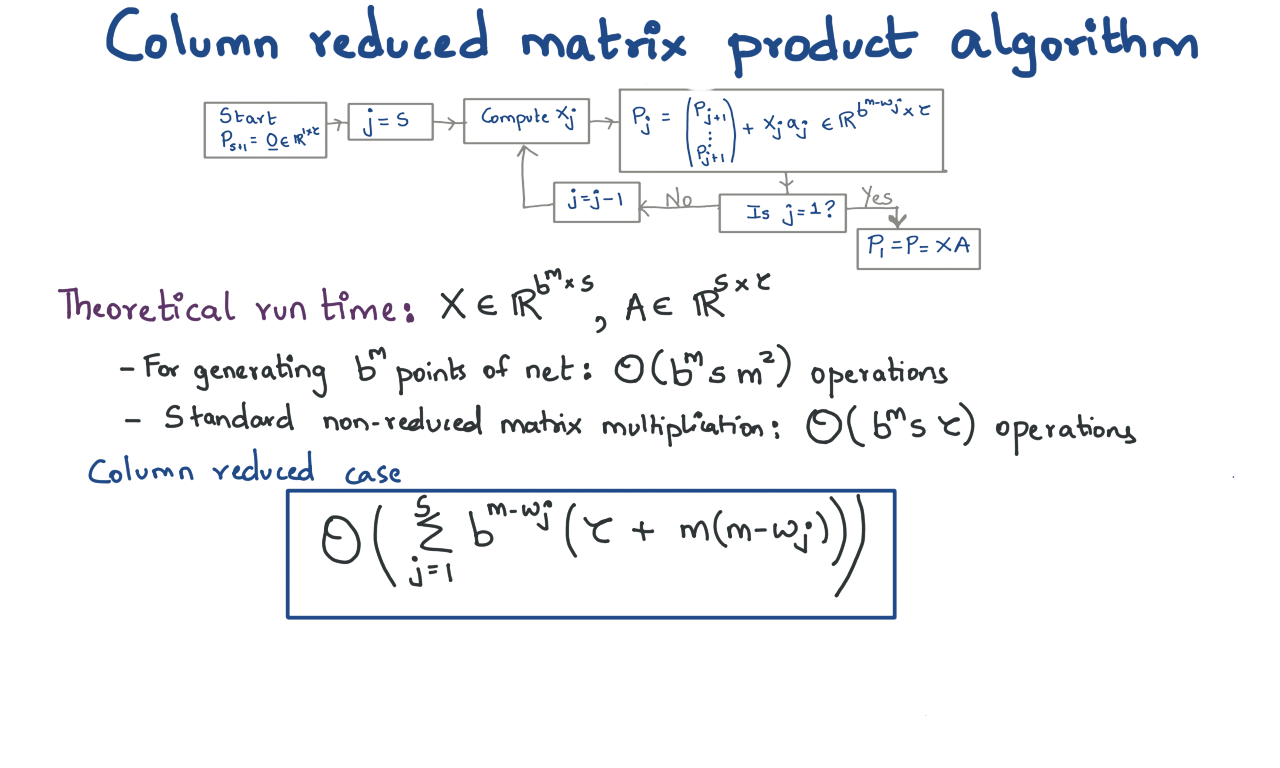 Column reduced matrix product algorithm
Start
P_{s+1} = 0 ∈ ℝ^{1×τ}
j = s
Compute X_j
P_j = (P_{j+1} ⋮ P_{j+1}) + X_j a_j ∈ ℝ^{b^{m-w_j} × τ}
j = j-1
No
Is j = 1?
Yes
P_1 = P = XA
Theoretical run time: X ∈ ℝ^{b^m × s}, A ∈ ℝ^{s × τ}
- For generating b^m points of net: O(b^m s m^2) operations
- Standard non-reduced matrix multipliation: O(b^m s τ) operations
Column reduced case
O(∑_{j=1}^{s} b^{m-w_j} (τ + m(m-w_j)))